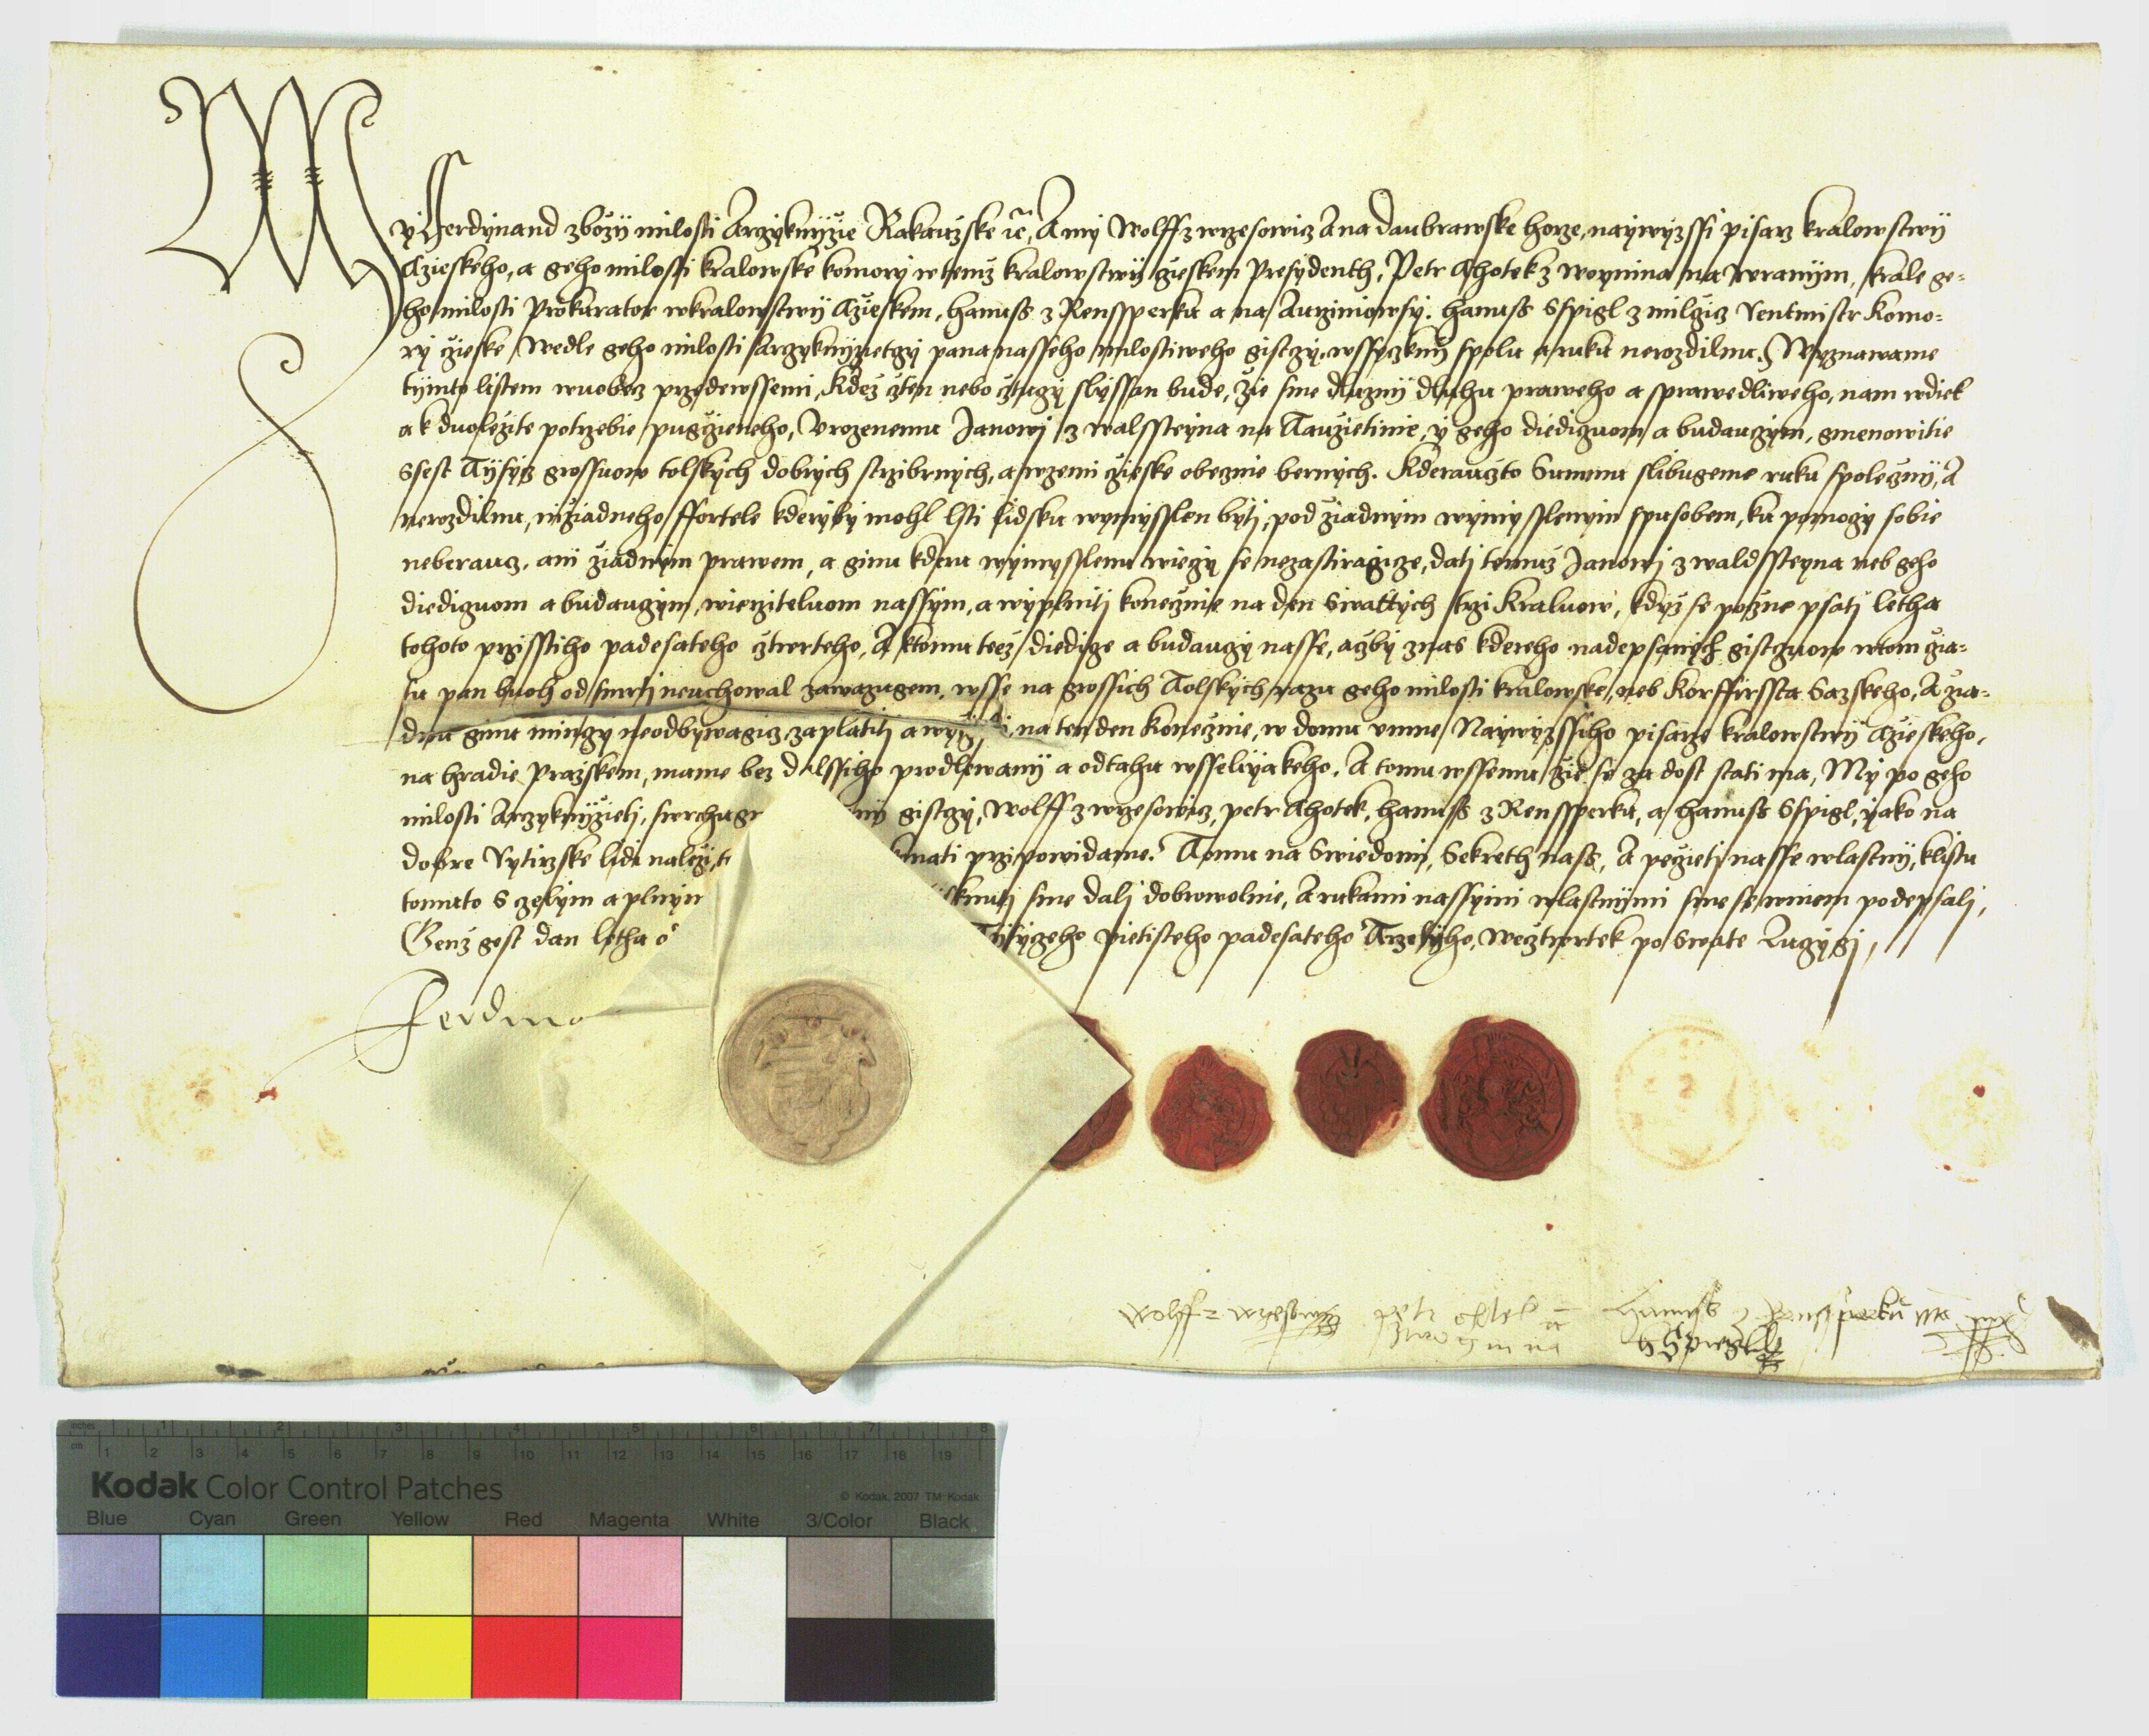 My Ferdynand z bozij milosti Arzyknijzie Rakauzske ꝛc̃, A my Wolff z wrzesowicz A na daubrawske horze, naywyzssi pisarz kralowstwij
Czieskeho, a geho milosti kralowske komory w temz kralowstwij cžieskem Presydenth, Petr Chotek z woynina na wranijm, krale ge-
ho milosti Prokurator w kralowstwij Czieskem, Hanuss z Rensspergku a na Aurziniowsy. Hanuss Sspigl z milcžicz Rentmistr Komo-
ry cžieske, Wedle geho milosti Arzyknijzietczy pana nasseho milostiweho gistczy, wssyczkni spolu a ruku nerozdilnu. Wyznawame
tijmto listem wuobecz przedewssemi, Kdez cžten nebo cžtuczy slyssan bude, Zie sme dluzni dluhu praweho a sprawedliweho, nam wdiek
a k duolezite potrzebie pugcžieneho, Urozenemu Janowi z walssteyna na Tauzietinie, y geho diediczuom a buduczym, gmenowitie
Ssest Tisycz grossuow tolskych dobrych strzibrnych, a w zemi cžieske obecznie bernych. Kderauzto Summu slibugeme ruku spolecžnij, A
nerozdilnu, nižiadneho ffortele kderyby mohl lsti lidsku wymysslen byti, pod žiadnym wymysslenym spusobem, ku pomoczy sobie
neberaucz, ani žiadnym prawem, a ginu kderu wymysslenu wieczy se nezastiragicze, dati temuz Janowi z waldssteyna neb geho
diediczuom a buduczym, wierzitelnom nassym, a wyplniti konecžnie na den Swattych trzi Kraluow, kdyz se pocžne psati letha
tohoto przisstiho padesateho cžtwrteho, A k tomu teez diedicze a buduczy nasse, acžby z nas kdereho nadepsanych gistczuow w tom cžia-
su pan buoh od smrti neuchowal zawazugem, wsse na grossich Tolskych razu geho milosti kralowske, neb Korffirssta Sazskeho, A zia-
dnu ginu minczy neodbywagicz, zaplatiti a wy na ten den Konecžnie, w domu umne Naywyzssiho pisarze kralowstwij Czieskeho,
na hradie Prazskem, mame bez dalssiho prodlewanij a odtahu wsseliyakeho. A tomu wssemu, žie se za dost stati ma, My po geho
milosti Arzyknijzieti, swrchugm ny gistczy, Wolff z wrzesowicz, petr Chotek, Hanuss z Renssperku, a Hanuss Sspigl, yako na
dobre Rytirzske lidi nalezi, t knati przipowidame. Tomu na Swiedomi, Sekreth nass, A pecžieti nasse wlastnij, k listu
tomuto S czelym a plnym isknuti sme dali dobrowolnie, A rukami nassymi wlastnijmi sme se w niem podepsali,
Genz gest dan letha o Tisyczeho pietisteho padesateho Trzetyho, we cžtwrtek po Swate Luczygi,
Ferdina
Wolff z wrzesowicz Petr chotek z woynina Hanuss z Rensperku
H Spiegll
Kodak Color Control Patches
© Kodak, 2007 TM: Kodak
Blue Cyan Green Yellow Red Magenta White 3/Color Black
inches 1 2 3 4 5 6 7 8
cm 1 2 3 4 5 6 7 8 9 10 11 12 13 14 15 16 17 18 19